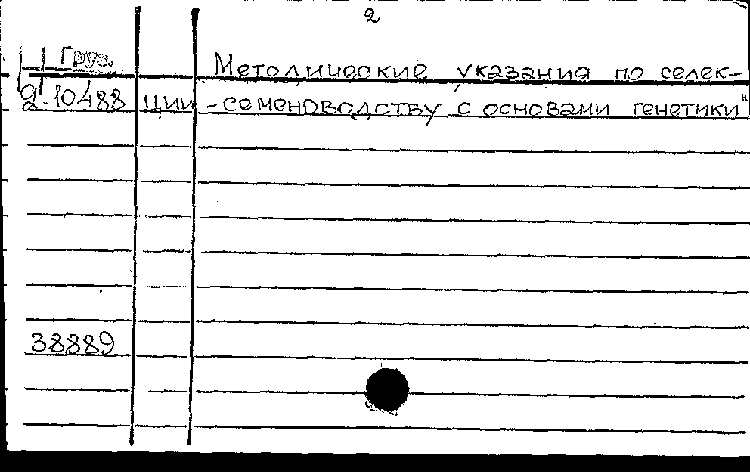 2
Груз.
Методические указания по селек-
2-10488 ции-семеноводству с основами генетики
38889